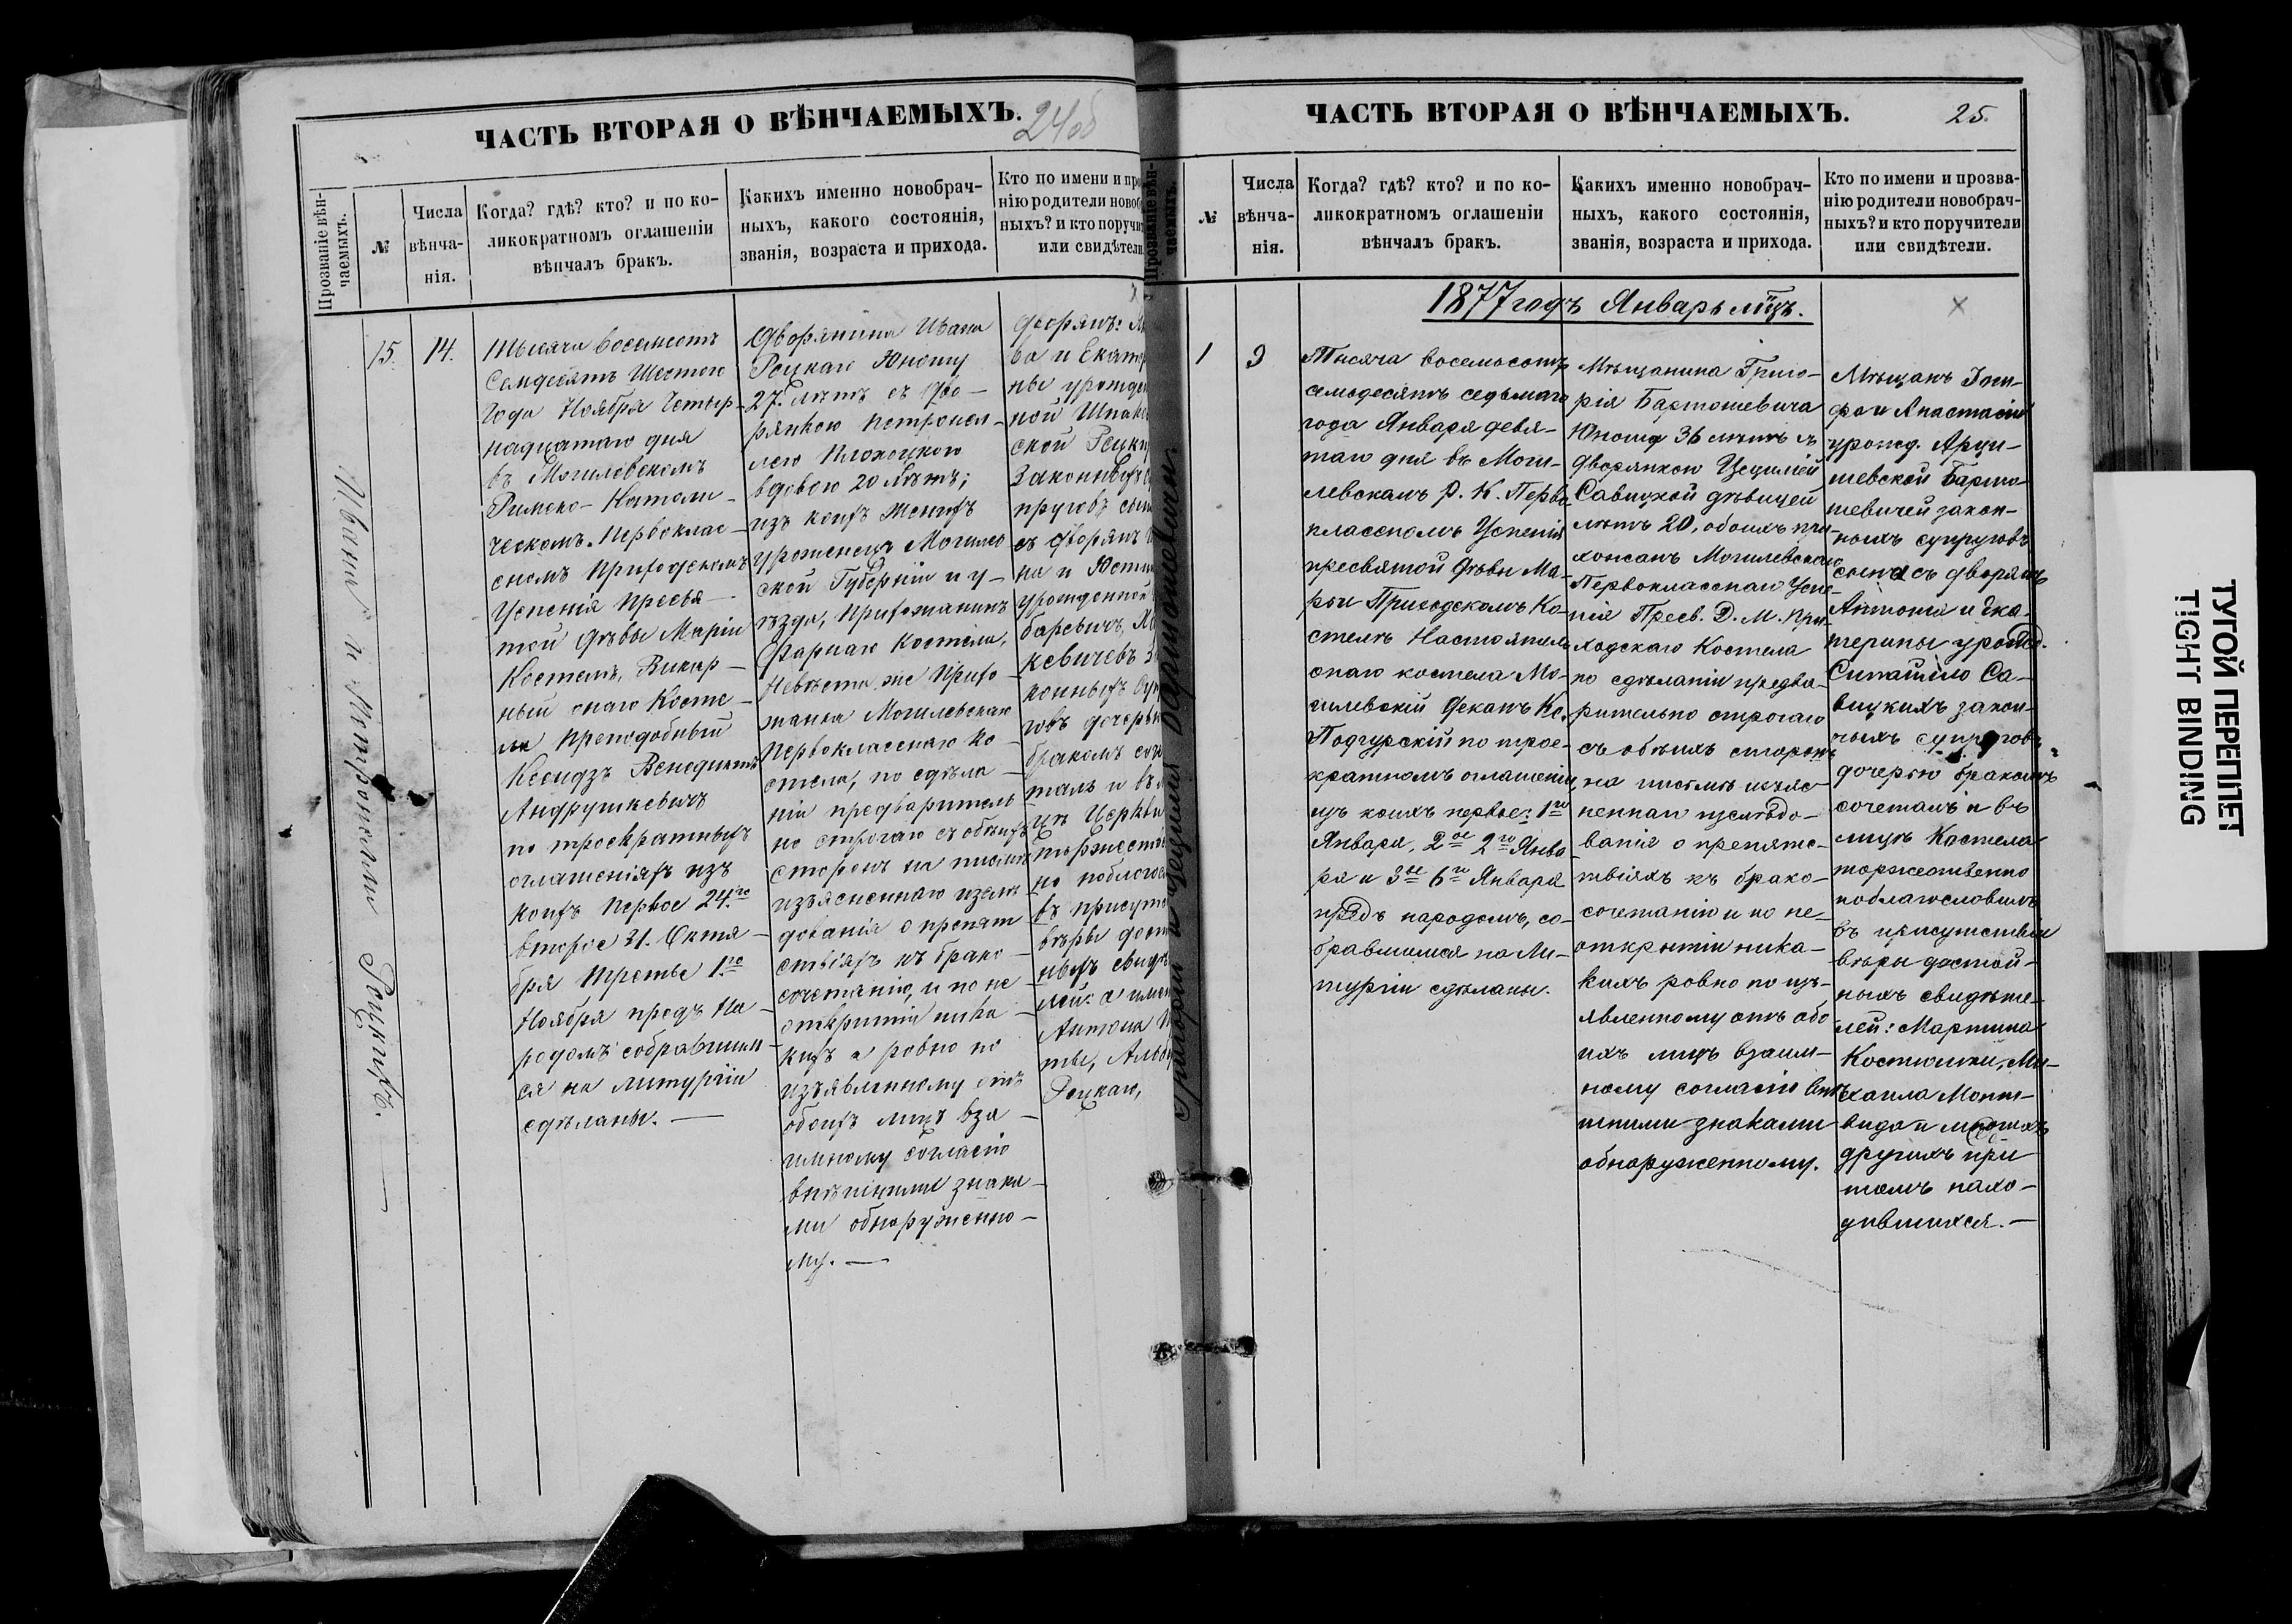 ЧАСТЬ ВТОРАЯ О ВѢНЧАЕМЫХЪ.
24об
Прозваніе вѣн-
чаемыхъ.
№
Числа
вѣнча-
нія.
Когда? гдѣ? кто? и по ко-
ликократномъ оглашеніи
вѣнчалъ бракъ.
Какихъ именно новобрач-
ныхъ, какого состоянія,
званія, возраста и прихода.
Кто по имени и про
нію родители новоб
ныхъ? и кто поручит
или свидѣтели
Ивана и Петронели Роцкихъ.
15.
14.
Тысяча восемсотъ
Семдесятъ Шестого
Года Ноября Четыр-
надцатаго дня
въ Могилевскомъ
Римско-Католи-
ческомъ Первоклас-
сномъ Приходскомъ
Успенія Пресвя-
той Дѣвы Маріи
Костелѣ, Викар-
ный онаго Косте-
ла Преподобный
Ксендзъ Венедиктъ
Андрушкевичъ
по троекратныхъ
оглашеніяхъ изъ
коихъ Первое 24.го
второе 31. Октя-
бря Третье 1.го
Ноября предъ На-
родомъ собравшим-
ся на литургіи
сдѣланы.
Дворянина Ивана
Роцкаго Юношу
27. лѣтъ съ Дво-
рянкою Петронел-
лею Плохоцкою
вдовою 20 лѣтъ;
изъ коихъ Женихъ
уроженецъ Могилев
ской Губерніи и у-
ѣзда, Прихожанинъ
Фарнаго Костела,
Невѣста же Прихо-
жанка Могилевскаго
Первокласснаго Ко-
стела, по сдѣла-
ніи предваритель
но строгаго съ обѣихъ
сторонъ на письмѣ
изъясненнаго изслѣ
дованія о препят
ствіяхъ къ брако-
сочетанію, и по не
открытіи ника-
кихъ а ровно по
изъявленному отъ
обоихъ лицъ вза-
имному согласію
внѣшними знака-
ми обнаруженно-
му.
Дворянъ:
ва и Екатер
ны урожден
ной
ской Роцки
Законныхъ
пруговъ сына
съ дворянъ
на и Юсти
урожденной

кевичевъ
конныхъ Суп
говъ дочерью
бракомъ соче
талъ и въ
цѣ Церкви
торжествен
но поблагос
въ присутс
вѣры дост
ныхъ свидѣт
лей: а имен
Антона
ты,
Роцкаго,
ЧАСТЬ ВТОРАЯ О ВѢНЧАЕМЫХЪ.
25.
Прозваніе вѣн-
чаемыхъ.
№
Числа
вѣнча-
нія.
Когда? гдѣ? кто? и по ко-
ликократномъ оглашеніи
вѣнчалъ бракъ.
Какихъ именно новобрач-
ныхъ, какого состоянія,
званія, возраста и прихода.
Кто по имени и прозва-
нію родители новобрач-
ныхъ? и кто поручители
или свидѣтели.
1877 годъ Январь мцъ.
Григорій и Цецилія
1
9
Тысяча восемьсотъ
семьдесятъ седьмаго
года Января девя-
таго дня въ Моги-
левскомъ Р. К. Перво-
классномъ Успенія
пресвятой Дѣвы Ма-
ріи Приходскомъ Ко-
стелѣ Настоятель
онаго костела Мо-
гилевскій Деканъ Кс.
Подгурскій по трое-
кратномъ оглашеніи,
изъ коихъ первое: 1го
Января, 2ое 2го Янва
ря и 3ье 6го Января
предъ народомъ, со-
бравшимся на Ли-
тургіи сдѣланы.
Мѣщанина Григо-
рія Бартошевича
Юношу 36 лѣтъ съ
дворянкою Цециліей
Савицкой дѣвицей
лѣтъ 20, обоихъ при-
хожанъ Могилевскаго
Первокласснаго Успе-
нія Пресв. Д. М. При-
ходскаго Костела
по сдѣланіи предва-
рительно строгаго
съ обѣихъ сторонъ
на письмѣ изъяс-
неннаго изслѣдо-
ванія о препятс-
твіяхъ къ брако-
сочетанію и по не-
открытіи ника-
кихъ ровно по изъ-
явленному отъ обо-
ихъ лицъ взаим-
ному согласію внѣ-
шними знаками
обнаруженному.
Мѣщанъ
и Анастасіи
урожд. Арци-
шевской Барто-
шевичей закон-
ныхъ супруговъ
сына съ дворянъ
Антонія и Ека-
терины урожд.
Са-
вицкихъ закон-
ныхъ супруговъ
дочерью бракомъ
сочеталъ и въ
лицѣ Костела
торжественно
поблагословилъ
въ присутствіи
вѣры достой-
ныхъ свидѣте-
лей: Мартина
Костюшки, Ми-
хаила Монт-
вида и многихъ
другихъ при
томъ нахо-
дившихся.
ТУГОЙ ПЕРЕПЛЕТ
TIGHT BINDING